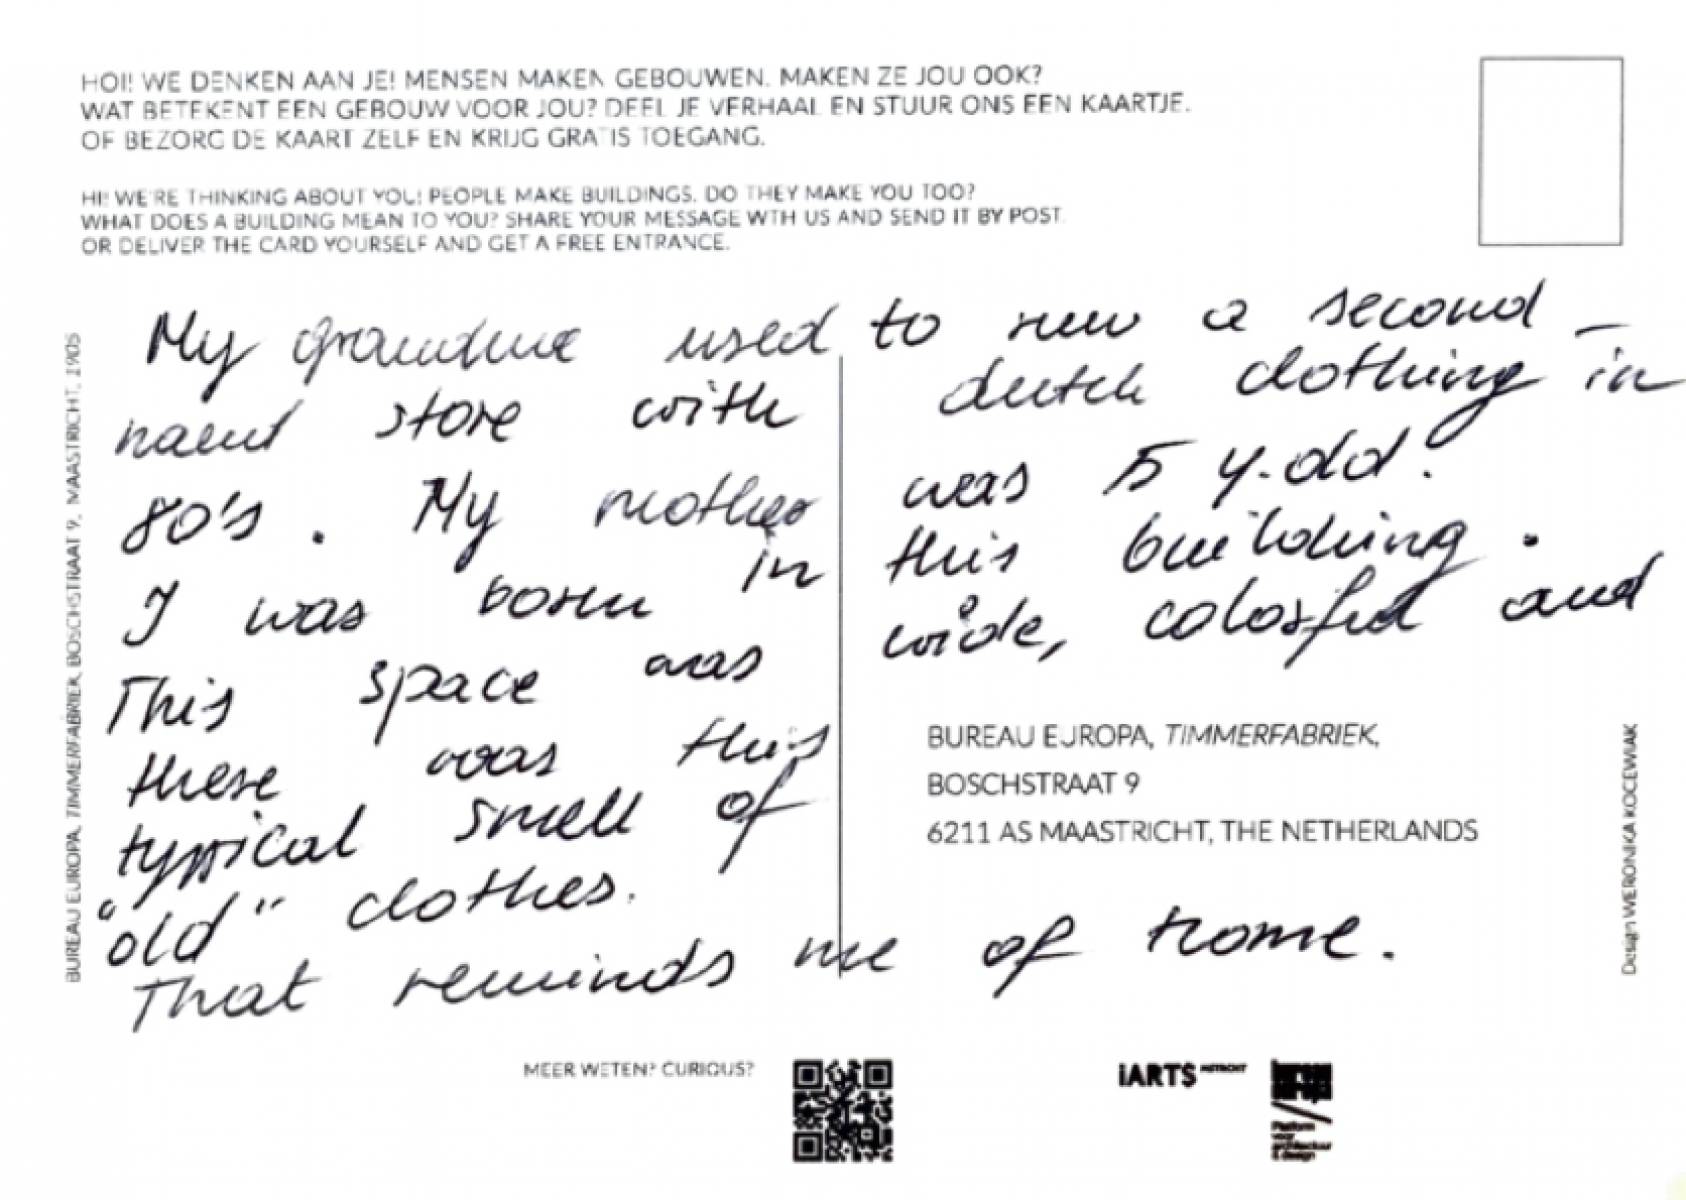 HOI! WE DENKEN AAN JE! MENSEN MAKEN GEBOUWEN. MAKEN ZE JOU OOK?
WAT BETEKENT EEN GEBOUW VOOR JOU? DEEL JE VERHAAL EN STUUR ONS EEN KAARTJE.
OF BEZORG DE KAART ZELF EN KRIJG GRATIS TOEGANG.
HI! WE'RE THINKING ABOUT YOU! PEOPLE MAKE BUILDINGS. DO THEY MAKE YOU TOO?
WHAT DOES A BUILDING MEAN TO YOU? SHARE YOUR MESSAGE WTH US AND SEND IT BY POST
OR DELIVER THE CARD YOURSELF AND GET A FREE ENTRANCE.
My grandma used to run a second-
hand store with dutch clothing in
80's. My mother was 5 y.old.
I was born in this building.
This space was wide, colorful and
there was this
typical smell of
"old" clothes.
That reminds me of home.
BUREAU EUROPA, TIMMERFABRIEK,
BOSCHSTRAAT 9
6211 AS MAASTRICHT, THE NETHERLANDS
BUREAU EUROPA, TIMMERFABRIEK, BOSCHSTRAAT 9, MAASTRICHT, 1905
Design WERONIKA KOCEWIAK
MEER WETEN? CURIOUS?
iARTS
Platform
voor
architectuur
& design